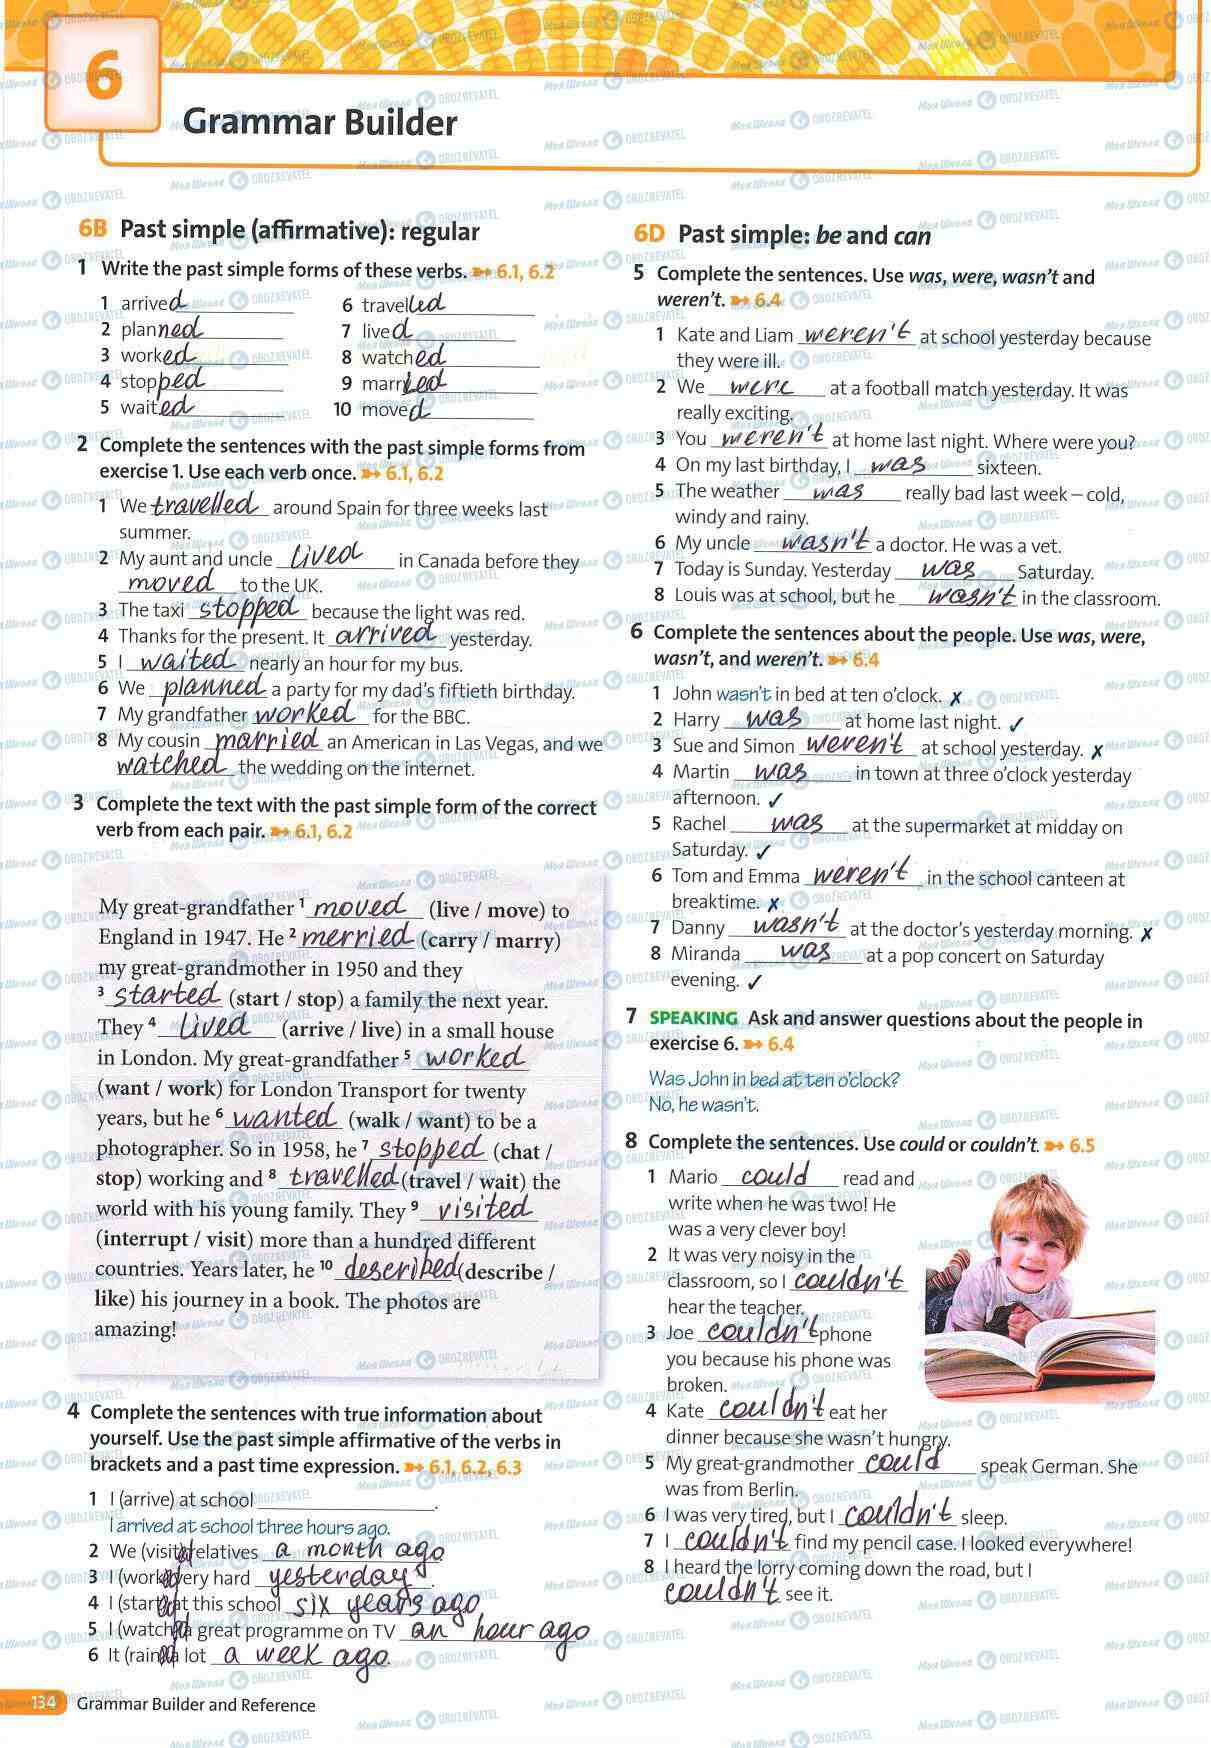 6
Grammar Builder
6B Past simple (affirmative): regular
1 Write the past simple forms of these verbs. ➻ 6.1, 6.2
1 arrived
2 planned
3 worked
4 stopped
5 waited
6 travelled
7 lived
8 watched
9 married
10 moved
2 Complete the sentences with the past simple forms from
exercise 1. Use each verb once. ➻ 6.1, 6.2
1 We travelled around Spain for three weeks last
summer.
2 My aunt and uncle lived in Canada before they
moved to the UK.
3 The taxi stopped because the light was red.
4 Thanks for the present. It arrived yesterday.
5 I waited nearly an hour for my bus.
6 We planned a party for my dad's fiftieth birthday.
7 My grandfather worked for the BBC.
8 My cousin married an American in Las Vegas, and we
watched the wedding on the internet.
3 Complete the text with the past simple form of the correct
verb from each pair. ➻ 6.1, 6.2
My great-grandfather 1 moved (live / move) to
England in 1947. He 2 merried (carry / marry)
my great-grandmother in 1950 and they
3 started (start / stop) a family the next year.
They 4 lived (arrive / live) in a small house
in London. My great-grandfather 5 worked
(want / work) for London Transport for twenty
years, but he 6 wanted (walk / want) to be a
photographer. So in 1958, he 7 stopped (chat /
stop) working and 8 travelled (travel / wait) the
world with his young family. They 9 visited
(interrupt / visit) more than a hundred different
countries. Years later, he 10 described (describe /
like) his journey in a book. The photos are
amazing!
4 Complete the sentences with true information about
yourself. Use the past simple affirmative of the verbs in
brackets and a past time expression. ➻ 6.1, 6.2, 6.3
1 I (arrive) at school ____.
I arrived at school three hours ago.
2 We (visited relatives a month ago
3 I (worked very hard yesterday.
4 I (started at this school six years ago
5 I (watched a great programme on TV an hour ago
6 It (rained a lot a week ago.
134 Grammar Builder and Reference
6D Past simple: be and can
5 Complete the sentences. Use was, were, wasn't and
weren't. ➻ 6.4
1 Kate and Liam weren't at school yesterday because
they were ill.
2 We were at a football match yesterday. It was
really exciting.
3 You weren't at home last night. Where were you?
4 On my last birthday, I was sixteen.
5 The weather was really bad last week – cold,
windy and rainy.
6 My uncle wasn't a doctor. He was a vet.
7 Today is Sunday. Yesterday was Saturday.
8 Louis was at school, but he wasn't in the classroom.
6 Complete the sentences about the people. Use was, were,
wasn't, and weren't. ➻ 6.4
1 John wasn't in bed at ten o'clock. ✗
2 Harry was at home last night. ✓
3 Sue and Simon weren't at school yesterday. ✗
4 Martin was in town at three o'clock yesterday
afternoon. ✓
5 Rachel was at the supermarket at midday on
Saturday. ✓
6 Tom and Emma weren't in the school canteen at
breaktime. ✗
7 Danny wasn't at the doctor's yesterday morning. ✗
8 Miranda was at a pop concert on Saturday
evening. ✓
7 SPEAKING Ask and answer questions about the people in
exercise 6. ➻ 6.4
Was John in bed at ten o'clock?
No, he wasn't.
8 Complete the sentences. Use could or couldn't. ➻ 6.5
1 Mario could read and
write when he was two! He
was a very clever boy!
2 It was very noisy in the
classroom, so I couldn't
hear the teacher.
3 Joe couldn't phone
you because his phone was
broken.
4 Kate couldn't eat her
dinner because she wasn't hungry.
5 My great-grandmother could speak German. She
was from Berlin.
6 I was very tired, but I couldn't sleep.
7 I couldn't find my pencil case. I looked everywhere!
8 I heard the lorry coming down the road, but I
couldn't see it.
Моя Школа OBOZREVATEL